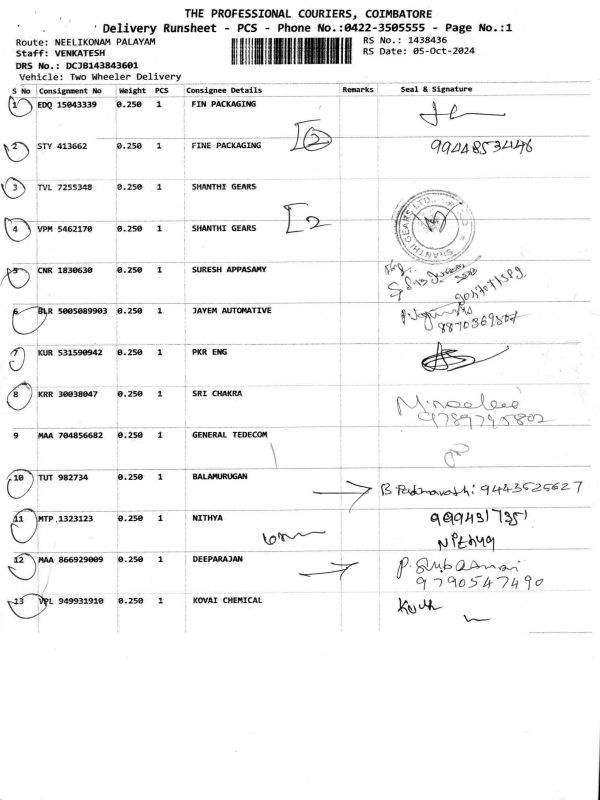 THE PROFESSIONAL COURIERS, COIMBATORE
Delivery Runsheet - PCS - Phone No.:0422-3505555 - Page No.:1
Route: NEELIKONAM PALAYAM
RS No.: 1438436
Staff: VENKATESH
RS Date: 05-Oct-2024
DRS No.: DCJB143843601
Vehicle: Two Wheeler Delivery
S No Consignment No Weight PCS Consignee Details Remarks Seal & Signature
1 EDQ 15043339 0.250 1 FIN PACKAGING
2 STY 413662 0.250 1 FINE PACKAGING 2 9944853446
3 TVL 7255348 0.250 1 SHANTHI GEARS
4 VPM 5462170 0.250 1 SHANTHI GEARS 2 SHANTHI GEARS LTD.
5 CNR 1830630 0.250 1 SURESH APPASAMY
6 BLR 5005089903 0.250 1 JAYEM AUTOMATIVE
8870369507
7 KUR 531590942 0.250 1 PKR ENG
8 KRR 30038047 0.250 1 SRI CHAKRA
9789795802
9 MAA 704856682 0.250 1 GENERAL TEDECOM
10 TUT 982734 0.250 1 BALAMURUGAN
B. Padmavathi 9443525627
11 MTP 1323123 0.250 1 NITHYA
9994317351
12 MAA 866929009 0.250 1 DEEPARAJAN
9790547490
13 VPL 949931910 0.250 1 KOVAI CHEMICAL